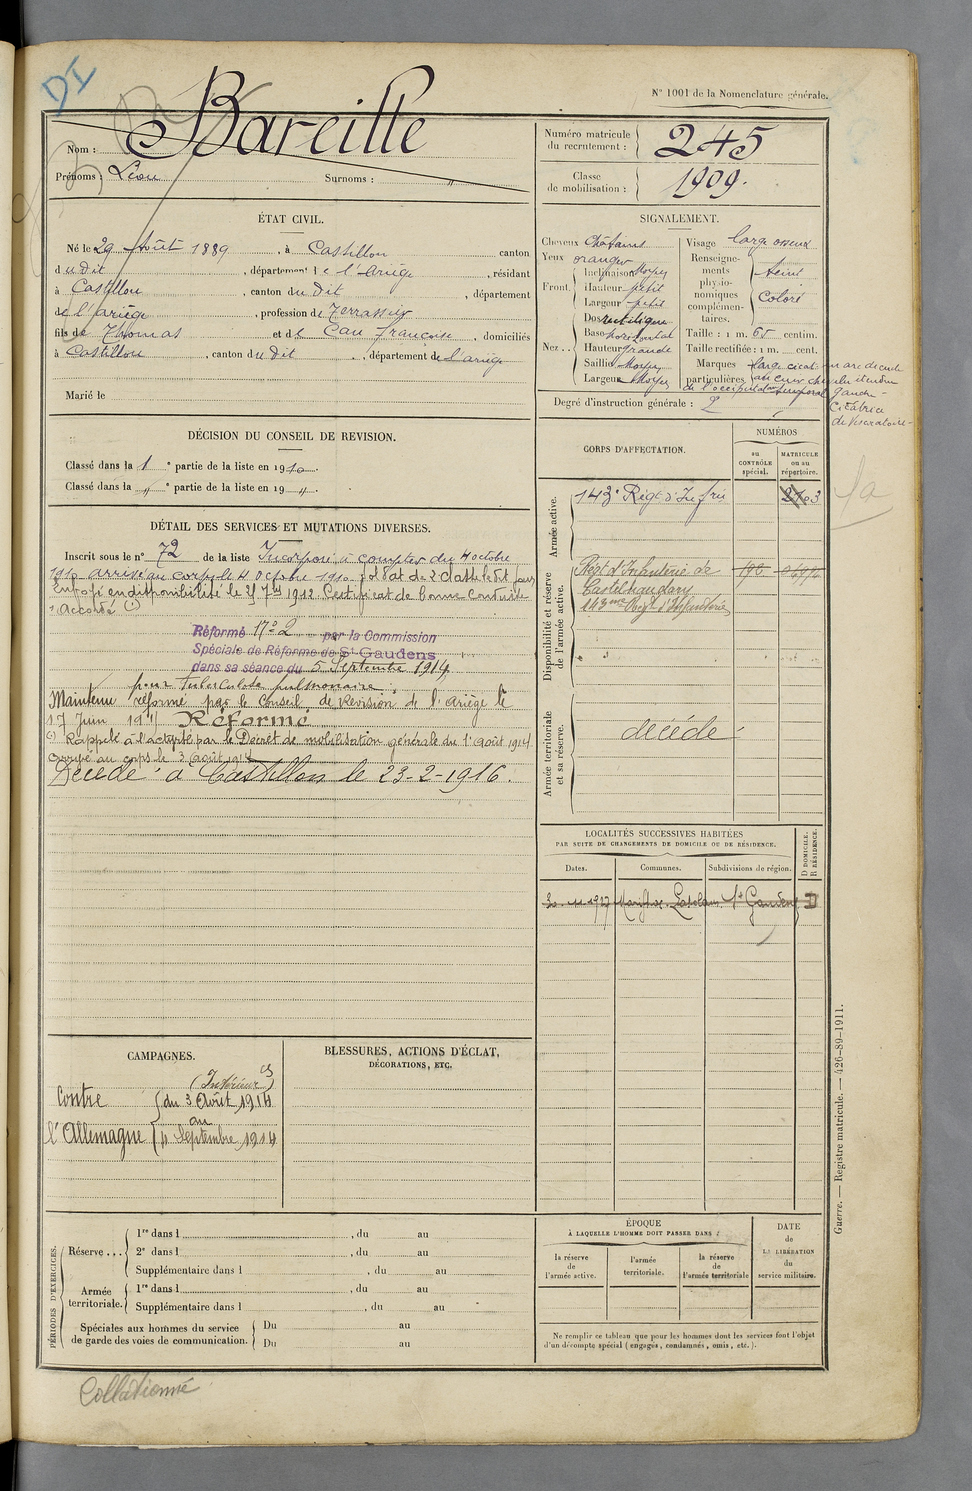 DI
N° 1001 de la Nomenclature générale.
Nom : Bareille
Prénoms : Léon Surnoms : "
Numéro matricule du recrutement : 245
Classe de mobilisation : 1909.
ÉTAT CIVIL.
Né le 29 Août 1889, à Castillon canton
dudit, département de l'Ariège, résidant
à Castillon, canton dudit, département
de l'Ariège, profession de Terrassier
fils de Thomas et de Cau Françoise, domiciliés
à Castillon, canton dudit, département de l'Ariège
Marié le
SIGNALEMENT.
Cheveux Châtains
Yeux orangés
Front. Inclinaison Moyen
Hauteur petit
Largeur petit
Nez.. Dos rectiligne
Base horizontal
Hauteur grande
Saillie Moyen
Largeur Moyen
Visage large osseux
Renseignements physionomiques complémentaires. teint Coloré
Taille : 1 m. 65 centim.
Taille rectifiée : 1 m. cent.
Marques particulières : large cicat. en arc de cercle
au cuir chevelu étendue
de l'occipital au temporal gauche -
Cicatrice
de Vésicatoire -
Degré d'instruction générale : 2
DÉCISION DU CONSEIL DE REVISION.
Classé dans la 1e partie de la liste en 1910.
Classé dans la " e partie de la liste en 19 ".
DÉTAIL DES SERVICES ET MUTATIONS DIVERSES.
Inscrit sous le n° 72 de la liste Incorporé à compter du 4 octobre
1910 arrivé au corps le 4 Octobre 1910. Soldat de 2e classe le dit jour
Envoyé en disponibilité le 25 7bre 1912. Certificat de bonne conduite
"Accordé" (1)
Réformé N° 2 par la Commission
Spéciale de Réforme de St Gaudens
dans sa séance du 5 Septembre 1914
pour Tuberculose pulmonaire.
Maintenu réformé par le Conseil de Révision de l'Ariège le
17 Juin Réformé
(1) Rappelé à l'activité par le Décret de mobilisation générale du 1er Août 1914
arrivé au corps le 3 Août 1914
Décédé à Castillon le 23-2-1916.
CORPS D'AFFECTATION.
NUMÉROS
au CONTRÔLE spécial.
MATRICULE ou au répertoire.
Armée active.
143e Régt d'Infrie
Disponibilité et réserve de l'armée active.
Régt d'Infanterie de
Castelnaudary
143me Régt d'Infanterie
Armée territoriale et sa réserve.
décédé
LOCALITÉS SUCCESSIVES HABITÉES
PAR SUITE DE CHANGEMENTS DE DOMICILE OU DE RÉSIDENCE.
Dates.
Communes.
Subdivisions de région.
D DOMICILE.
R RÉSIDENCE.
St Gaudens D
CAMPAGNES.
(Intérieur CS)
Contre l'Allemagne
du 3 Août 1914
au
4 Septembre 1914
BLESSURES, ACTIONS D'ÉCLAT,
DÉCORATIONS, ETC.
PÉRIODES D'EXERCICES.
Réserve...
1re dans l , du au
2e dans l , du au
Supplémentaire dans l , du au
Armée territoriale.
1re dans l , du au
Supplémentaire dans l , du au
Spéciales aux hommes du service de garde des voies de communication.
Du au
Du au
ÉPOQUE
À LAQUELLE L'HOMME DOIT PASSER DANS :
la réserve de l'armée active.
l'armée territoriale.
la réserve de l'armée territoriale
DATE de LA LIBÉRATION du service militaire.
Ne remplir ce tableau que pour les hommes dont les services font l'objet
d'un décompte spécial (engagés, condamnés, omis, etc.).
Guerre. — Registre matricule. — 426-89-1911.
Collationné